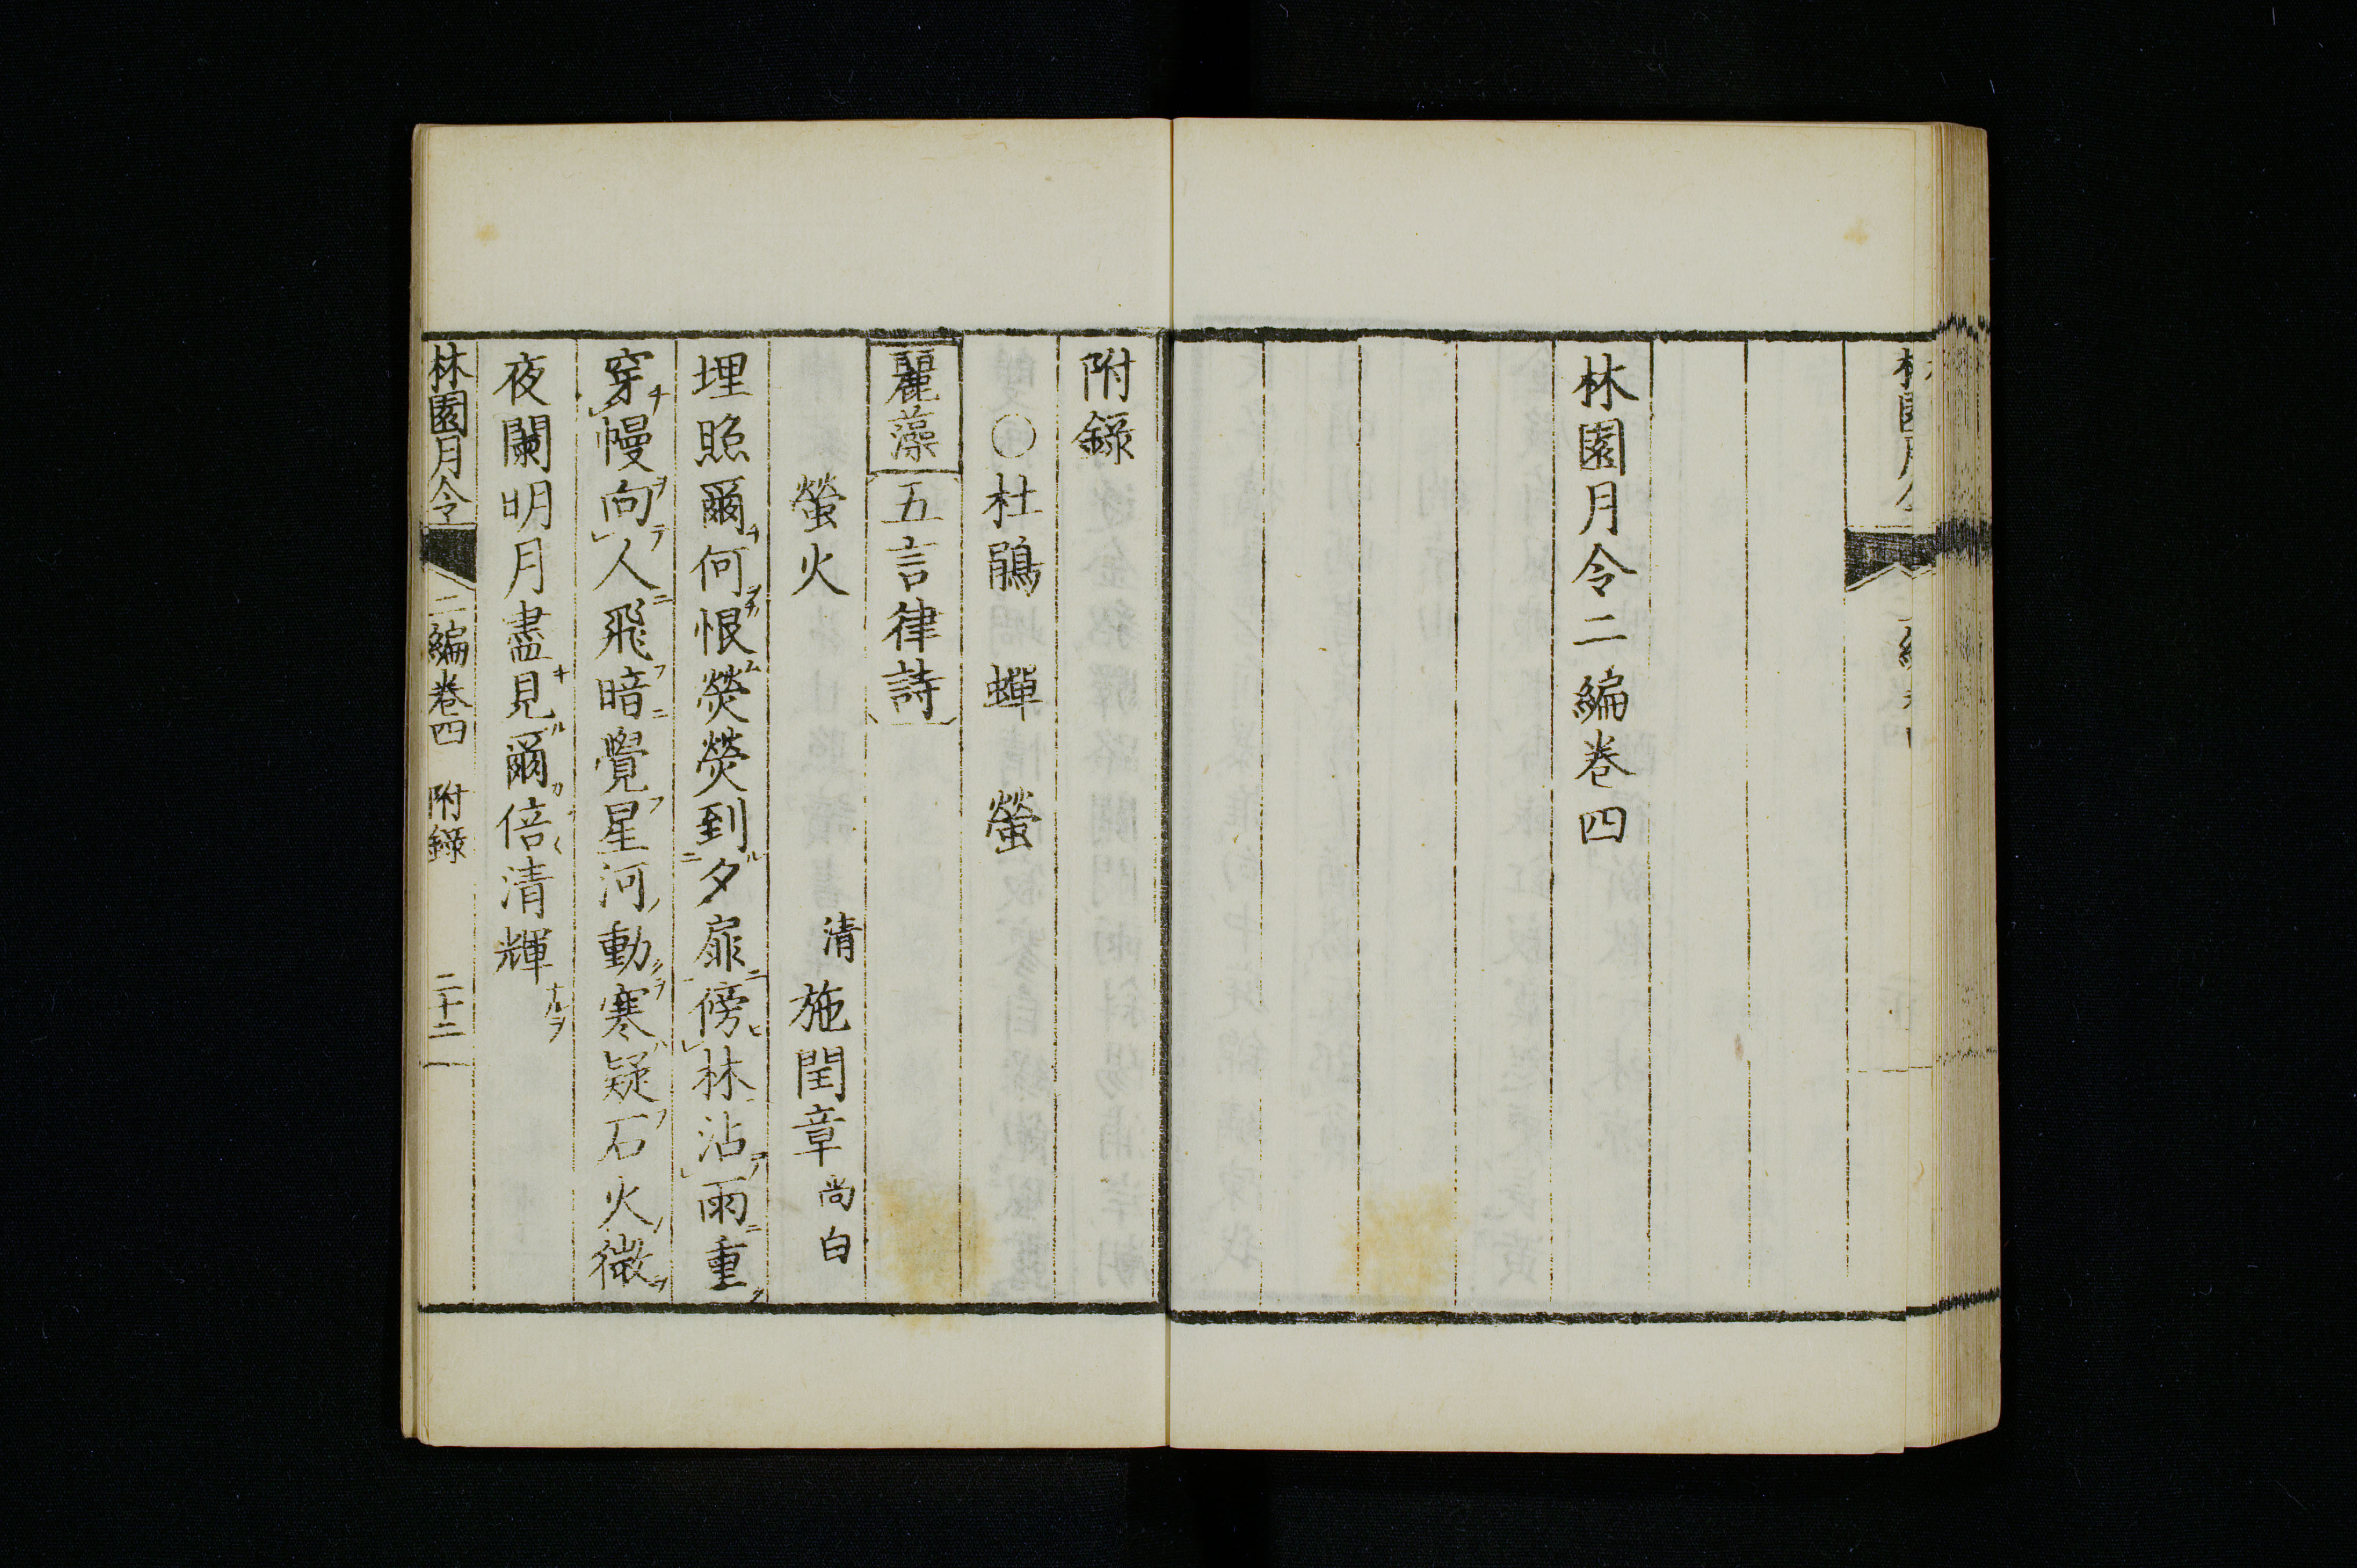 林園月令二編卷四
附錄
○杜鵑 蟬 螢
麗藻 五言律詩
螢火 清 施閏章 尚白
埋照爾何恨熒熒到夕扉傍林沾雨重
穿幔向人飛暗覺星河動寒疑石火微
夜闌明月盡見爾倍清輝
林園月令 二編卷四 附錄 二十二